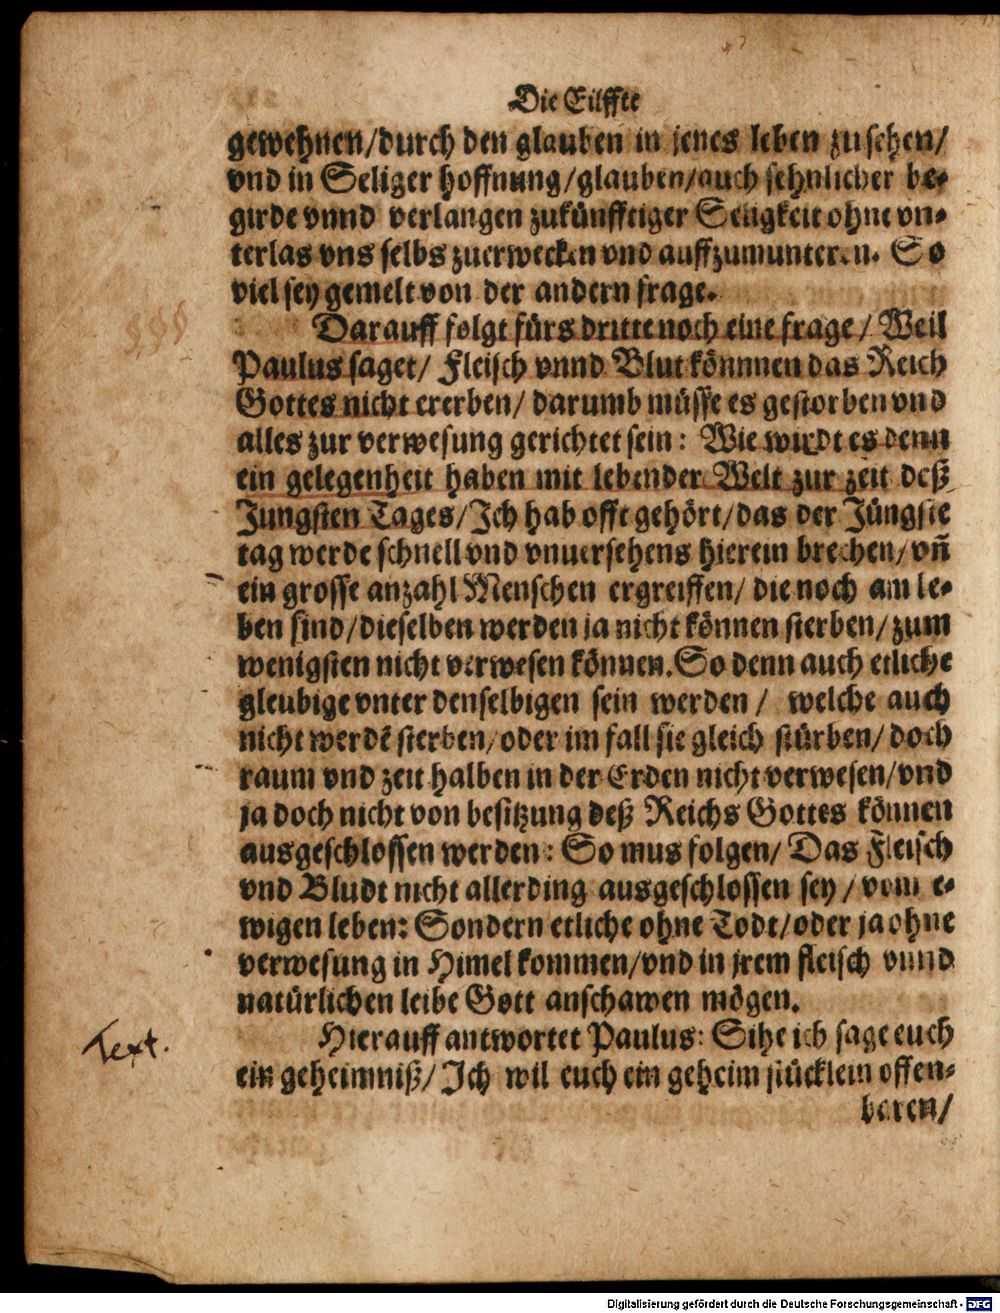 Die Eilffte
gewehnen/durch den glauben in jenes leben zu sehen/
vnd in Seliger hoffnung/glauben/auch sehnlicher be-
girde vnnd verlangen zukünfftiger Seligkeit ohne vn-
terlas vns selbs zuerwecken vnd auffzumunteren. So
viel sey gemelt von der andern frage.
Darauff folgt fürs dritte noch eine frage/ Weil
Paulus saget/ Fleisch vnnd Blut könnnen das Reich
Gottes nicht ererben/ darumb müsse es gestorben vnd
alles zur verwesung gerichtet sein: Wie wirdt es denn
ein gelegenheit haben mit lebender Welt zur zeit deß
Jungsten Tages/Ich hab offt gehört/das der Jüngste
tag werde schnell vnd vnuersehens hierein brechen/vñ
ein grosse anzahl Menschen ergreiffen/ die noch am le-
ben sind/dieselben werden ja nicht können sterben/zum
wenigsten nicht verwesen können.So denn auch etliche
gleubige vnter denselbigen sein werden/ welche auch
nicht werdē sterben/oder im fall sie gleich stürben/doch
raum vnd zeit halben in der Erden nicht verwesen/vnd
ja doch nicht von besitzung deß Reichs Gottes können
ausgeschlossen werden: So mus folgen/ Das Fleisch
vnd Bludt nicht allerding ausgeschlossen sey/vom e-
wigen leben: Sondern etliche ohne Todt/oder ja ohne
verwesung in Himel kommen/vnd in jrem fleisch vnnd
natürlichen leibe Gott anschawen mögen.
Text.
Hierauff antwortet Paulus: Sihe ich sage euch
ein geheimniß/ Ich wil euch ein geheim stücklein offen-
baren/
Digitalisierung gefördert durch die Deutsche Forschungsgemeinschaft - DFG